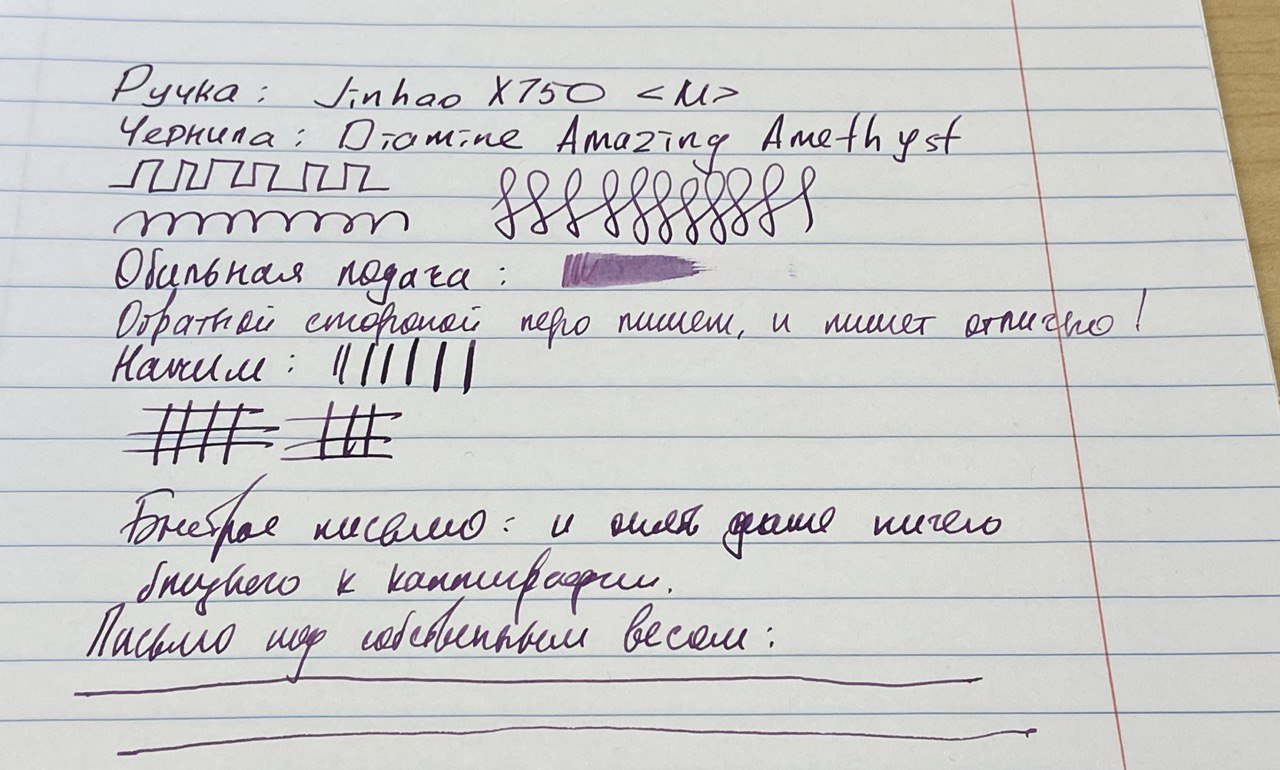 Ручка: Jinhao X750 <M>
Чернила: Diamine Amazing Amethyst
Обильная подача:
Обратной стороной перо пишет, и пишет отлично!
Нажим:
Быстрое письмо: и опять даже ничего
близкого к каллиграфии.
Письмо под собственным весом: